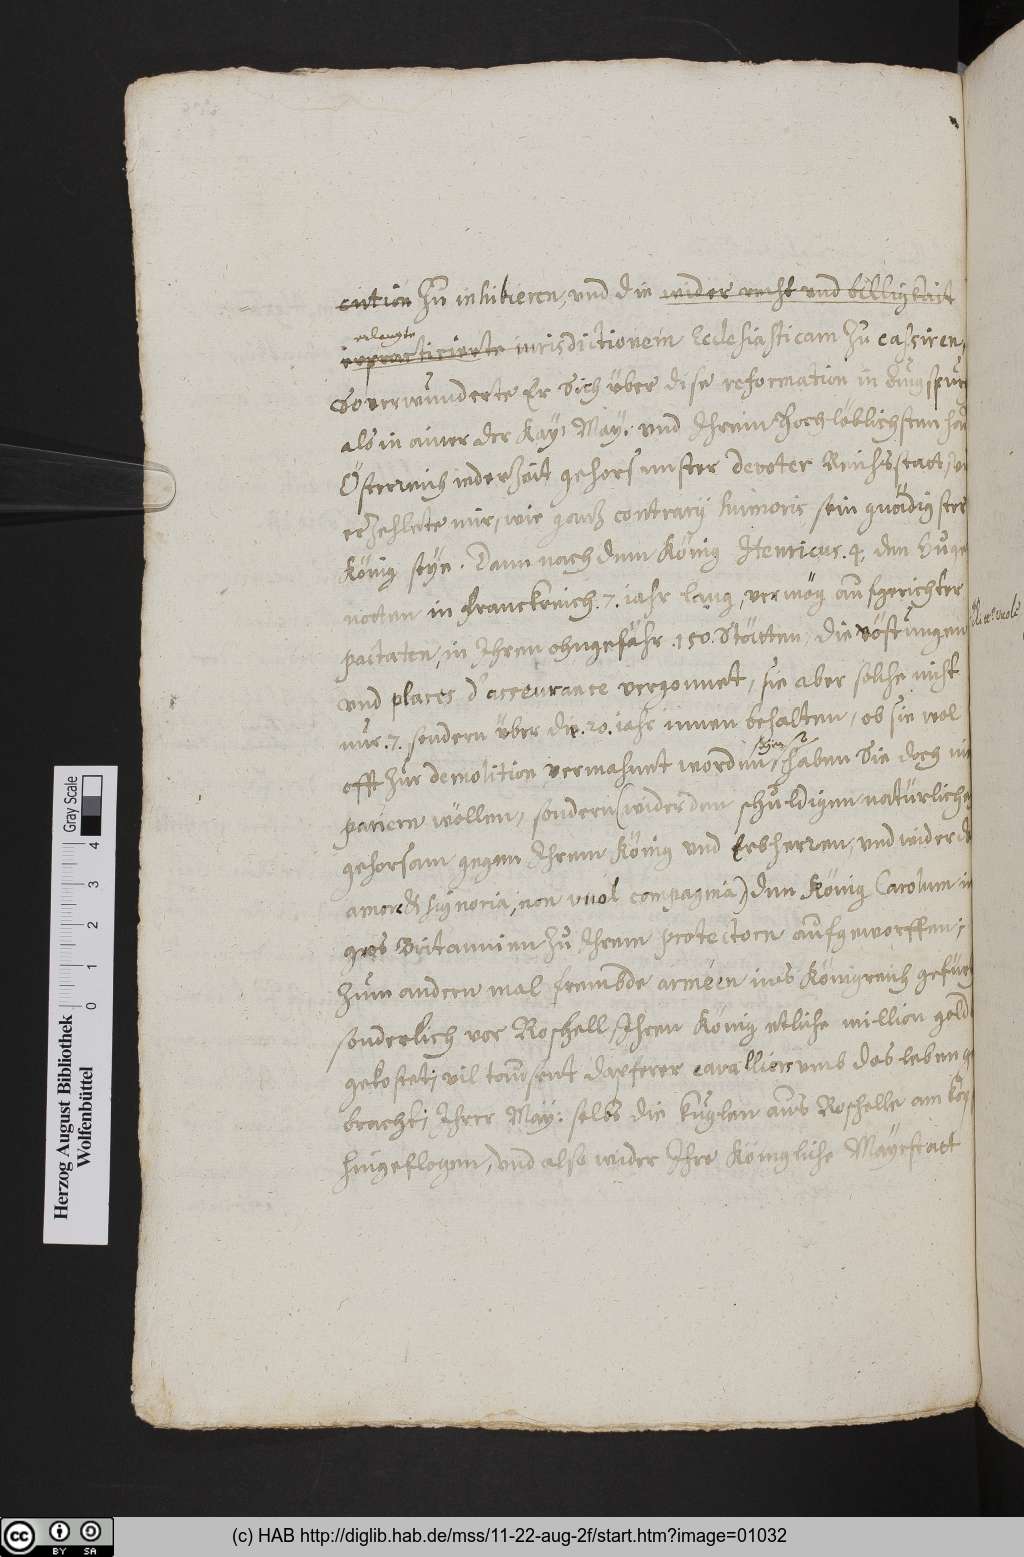 cution zu inhibieren, vnd die wider recht vnd billigkait
erlangte
erpracticierte iurisdictionem Ecclesiasticam zu cassiren,
So verwunderte Er Sich über dise reformation in Augspurg
als in ainer der Kay: May: vnd Ihrem hochlöblichsten hau
Österreich iederzeit gehorsamster devoter Reichsstatt,
erzehlete mir, wie gantz contrarij humoris sein gnädigster
König seye. Dann nach dem König Henricus .4. den Huge
notten in Franckreich .7. iahr lang, vermög aufgerichter
pactaten, in Ihren ohngefähr .150. Stätten, die vöstungen
vnd places d'asseurance vergonnet, sie aber solche nicht
nur .7. sondern über die .20. iahr innen behalten, ob sie wol
offt zur demolition vermahnet worden, haben Sie doch ni
schon
pariern wöllen, sondern (wider den schuldigen natürlichen
gehorsam gegen Ihrem König vnd Erbherren, vnd wider
amor & signoria, non vuol compagnia) den König Carolum in
gros Britannien zu Ihrem protectorn aufgeworffen,
zum andern mal frembde armeen ins Königreich gefür
sonderlich vor Roschell, Ihren König etliche million geld
gekostet, vil tausent dapferer cavalliers vmb das leben ge
bracht, Ihrer May: selbs die kuglen aus Roschelle am kop
hingeflogen, vnd also wider Ihre Königliche Mayestatt
Herzog August Bibliothek
Wolfenbüttel
Gray Scale
0 1 2 3 4
cc BY SA
(c) HAB http://diglib.hab.de/mss/11-22-aug-2f/start.htm?image=01032